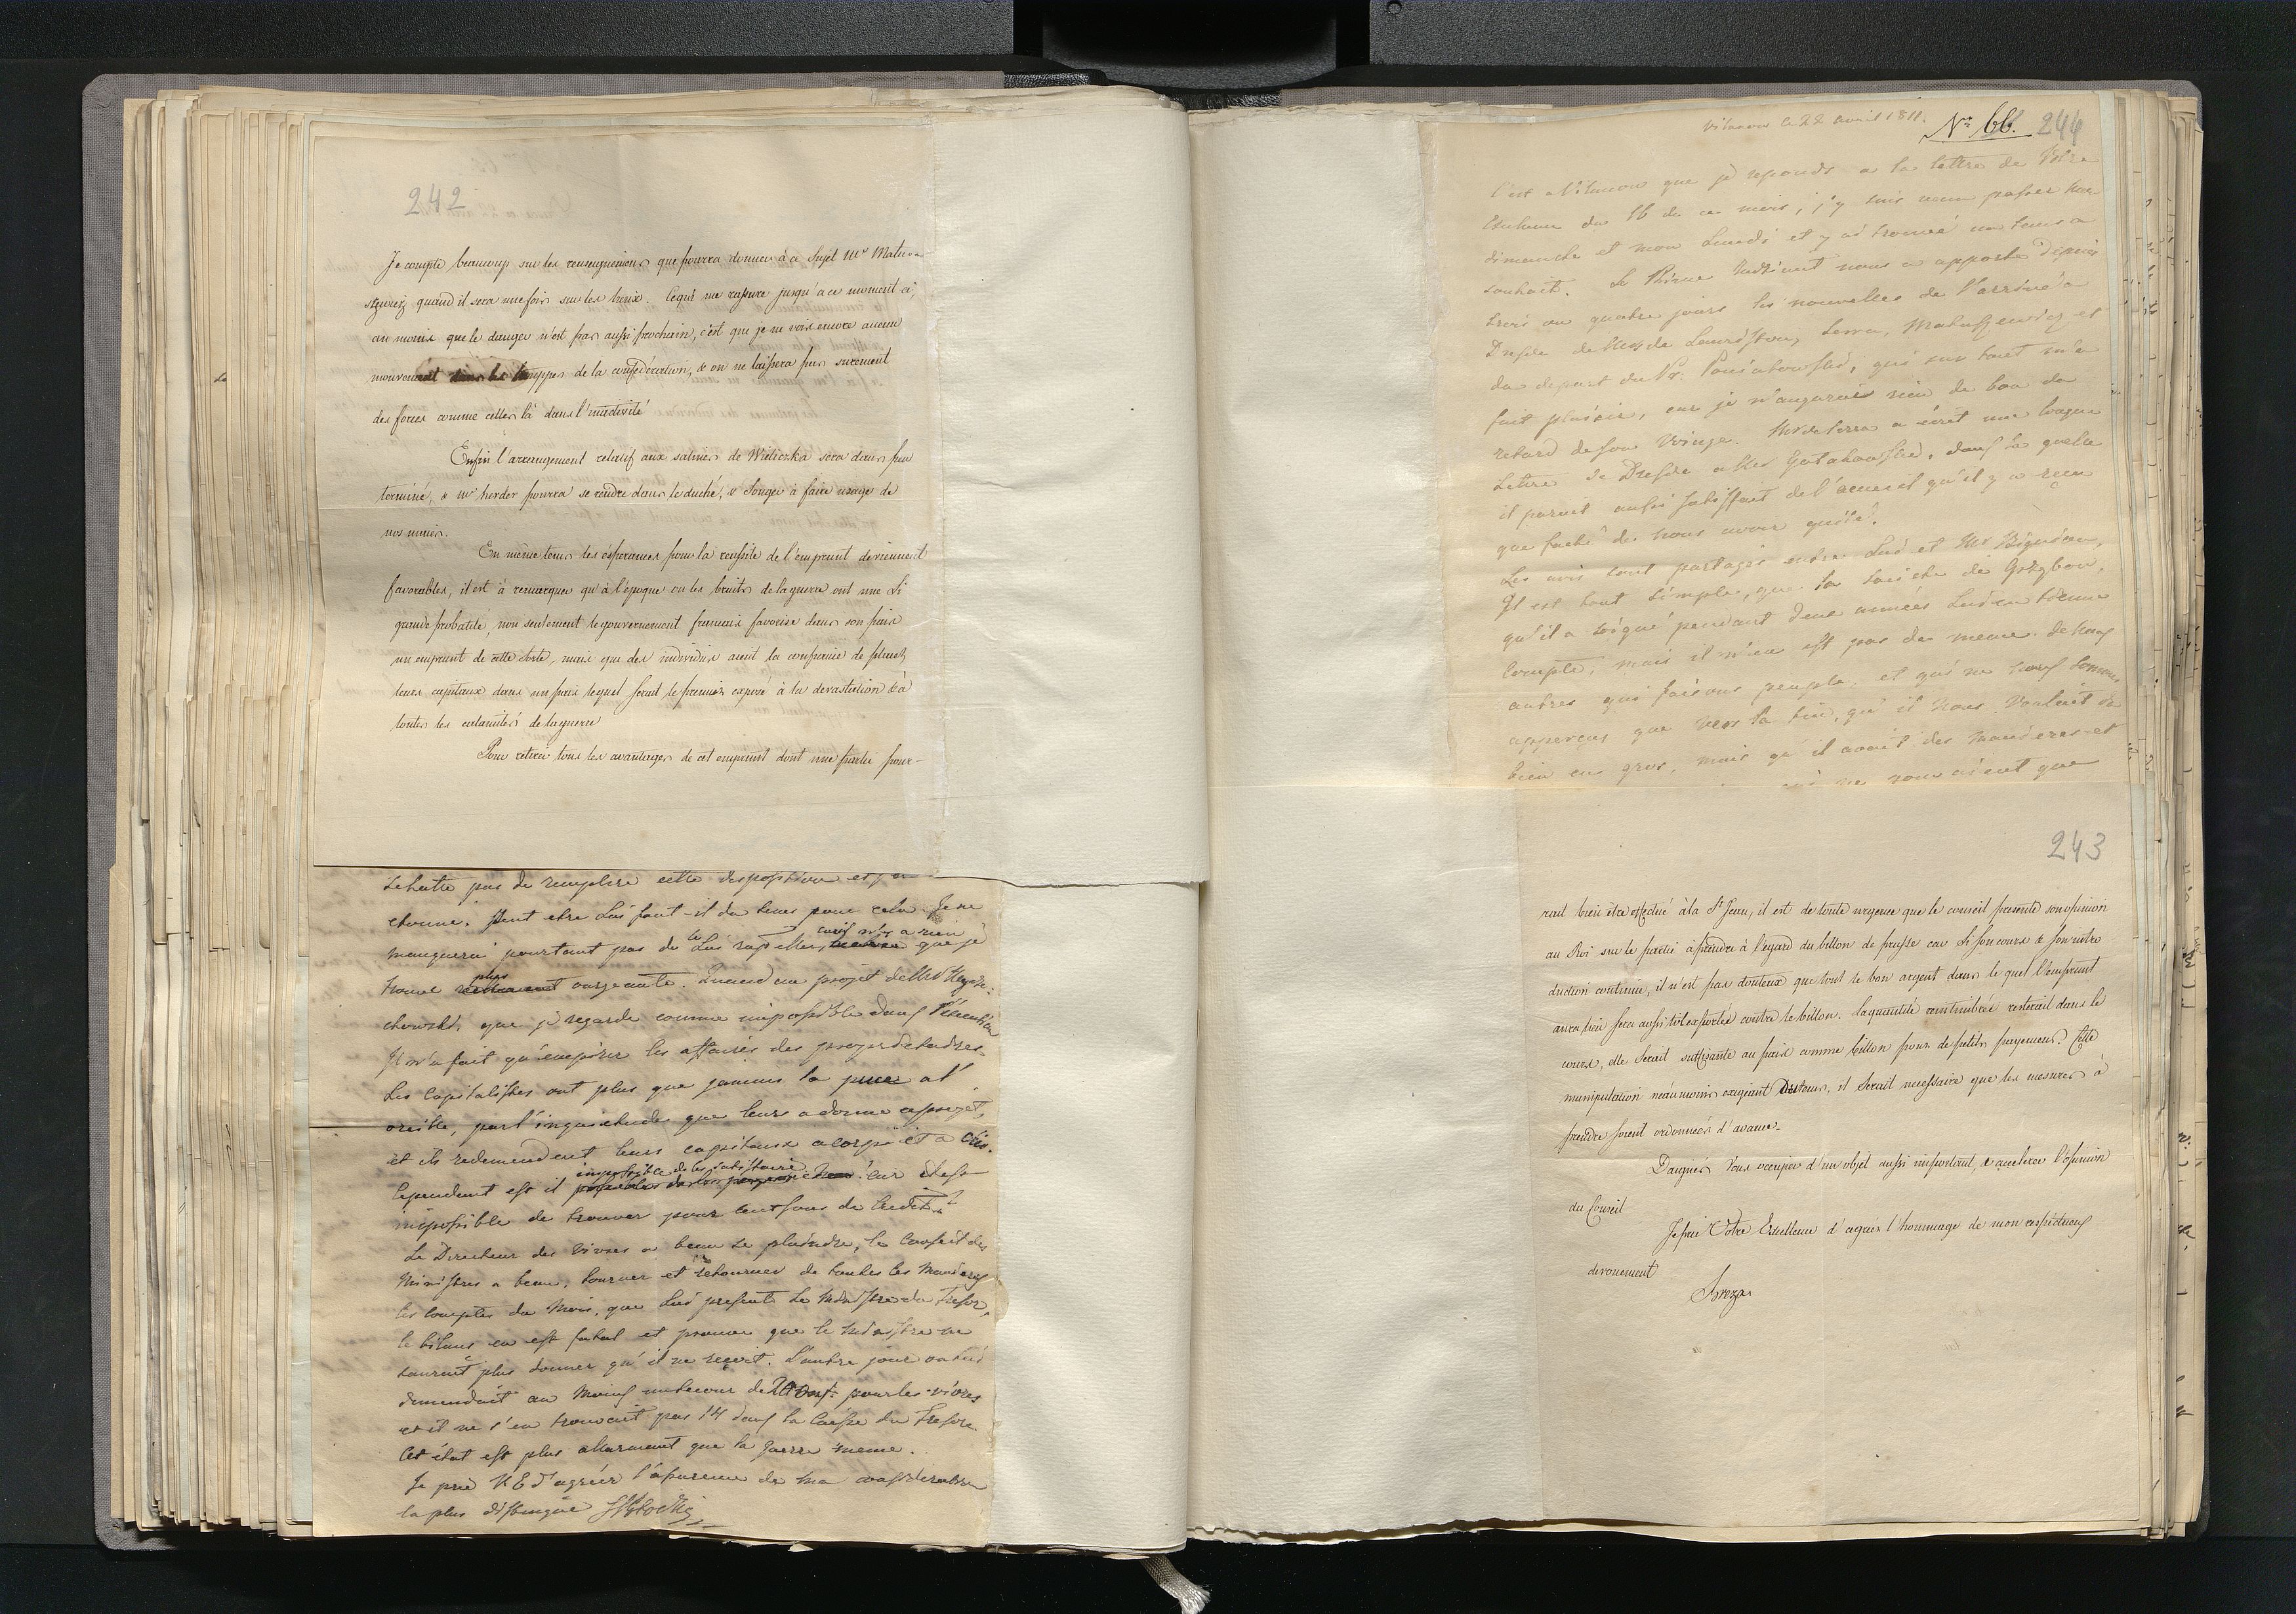 242
Je compte beaucoup sur les renseignemens que pourra donner à ce sujet Mr Matu-
szewiz quand il sera une fois sur les lieux. Ce qui me rassure jusqu'a ce moment ci,
au moins que le danger n'est pas aussi prochain, c'est que je ne vois encore aucun
mouvement dans les trouppes de la confédération, & on ne laissera pas surement
des forces comme celles là dans l'inactivité
Enfin l'arrangement relatif aux salines de Wieliczka sera dans peu
terminé, & mr herder pourra se rendre dans le duché, & songer à faire usage de
nos mines.
En même tems les espérances pour la reussite de l'emprunt deviennent
favorables, il est à remarquer qu'à l'epoque ou les bruits de la guerre ont une si
grande probabilité, non seulement le gouvernement francais favorise dans son païs
un emprunt de cette sorte, mais que des individus aient la confiance de placer
leurs capitaux dans un païs lequel serait le premier exposé à la devastation & à
toutes les calamités de la guerre
Pour retirer tous les avantages de cet emprunt dont une partie pour-
se hatte pas de remplire cette disposition et
etonne. Peut etre Lui faut-il du tems pour cela. Je ne
manquerai pourtant pas de le Lui rapeller, car il n'y a rien que je
trouve plus urgeante. Quand au projet de Mr
chowski, que je regarde comme impossible dans l'éxecution
Il n'a fait qu'empirer les affaires des proprietaires.
Les Capitalistes ont plus que jamais la puce al'
oreille, par l'inquietude que leurs a donné ce projet,
et ils redemandent leurs capitaux a corps et a cris.
Cependant est il impossible de les satisfaire car il est
impossible de trouver pour cent sous de Credit.
Le Directeur des vivres a beau se plaindre, le Conseil des
Ministres a beau, tourner et retourner de toutes les Manieres
les comptes du Mois, que Lui presente le Ministre du Tresor,
le bilans en est fatal et prouve que le Ministre ne
sauroit plus donner qu'il ne reçoit. L'autre jour on lui
demandait au moins un secour de pour les vivres
et il ne s'en trouvait pas 14 dans la Caisse du Tresor.
Cet état est plus allarmant que la guerre meme.
Je prie V E d'agréer l'assurence de ma consideration
la plus distinguée
Vilanow le 22 avril 1811.
Nr. 66. 244
C'est a Vilanow que je reponds a la lettre de Votre
Excellence du 16 de ce mois, j'y suis venu passer mon
dimanche et mon Lundi et y ai trouvé un tems a
souhait. Le Prince nous a apporté depuis
trois ou quatre jours les nouvelles de l'arrivé a
Dresde de Mrs de Lauriston, Serra, Matuszewicz et
du depart du Pr. Poniatowski, qui sur tout m'a
fait plaisir, car je n'augurais rien de bon du
retard de son voiage. Mr de Serra a écrit une longue
Lettre de Dresde a Mr Gutakowski, dans la quelle
il parait aussi satisfait de l'accueil qu'il y a reçu
que faché de nous avoir quitté.
Les avis sont partagés entre Lui et Mr Bignon,
Il est tout simple, que la societé de Grzybow,
qu'il a soigné pendant deux années Lui en tienne
compte, mais il n'en est pas de meme de nous
autres qui faisons peuple, et qui ne nous sommes
apperçus que vers la fin, qu'il nous voulait du
bien en gros, mais qu'il avait des manieres et
qui ne pouvaient que
243
rait bien être effectué à la St Jean, il est de toute urgence que le conseil presente son opinion
au Roi sur le partie à prendre à l'egard du billon de prusse car si son cours & son intro
duction continue, il n'est pas douteux que tout le bon argent dans le quel l'emprunt
aura lieu sera aussi tôt exporté contre le billon. la quantité contimbrée resterait dans le
cours, elle serait suffisante au païs comme billon pour de petits payemens. Cette
manipulation néaumoins exigeant du tems, il serait necessaire que les mesures à
prendre soient ordonnées d'avance.
Daignés Vous occuper d'un objet aussi important, & accelerer l'opinion
du Conseil
Je prie Votre Excellence d'agréer l'hommage de mon respectueux
devouement
Breza